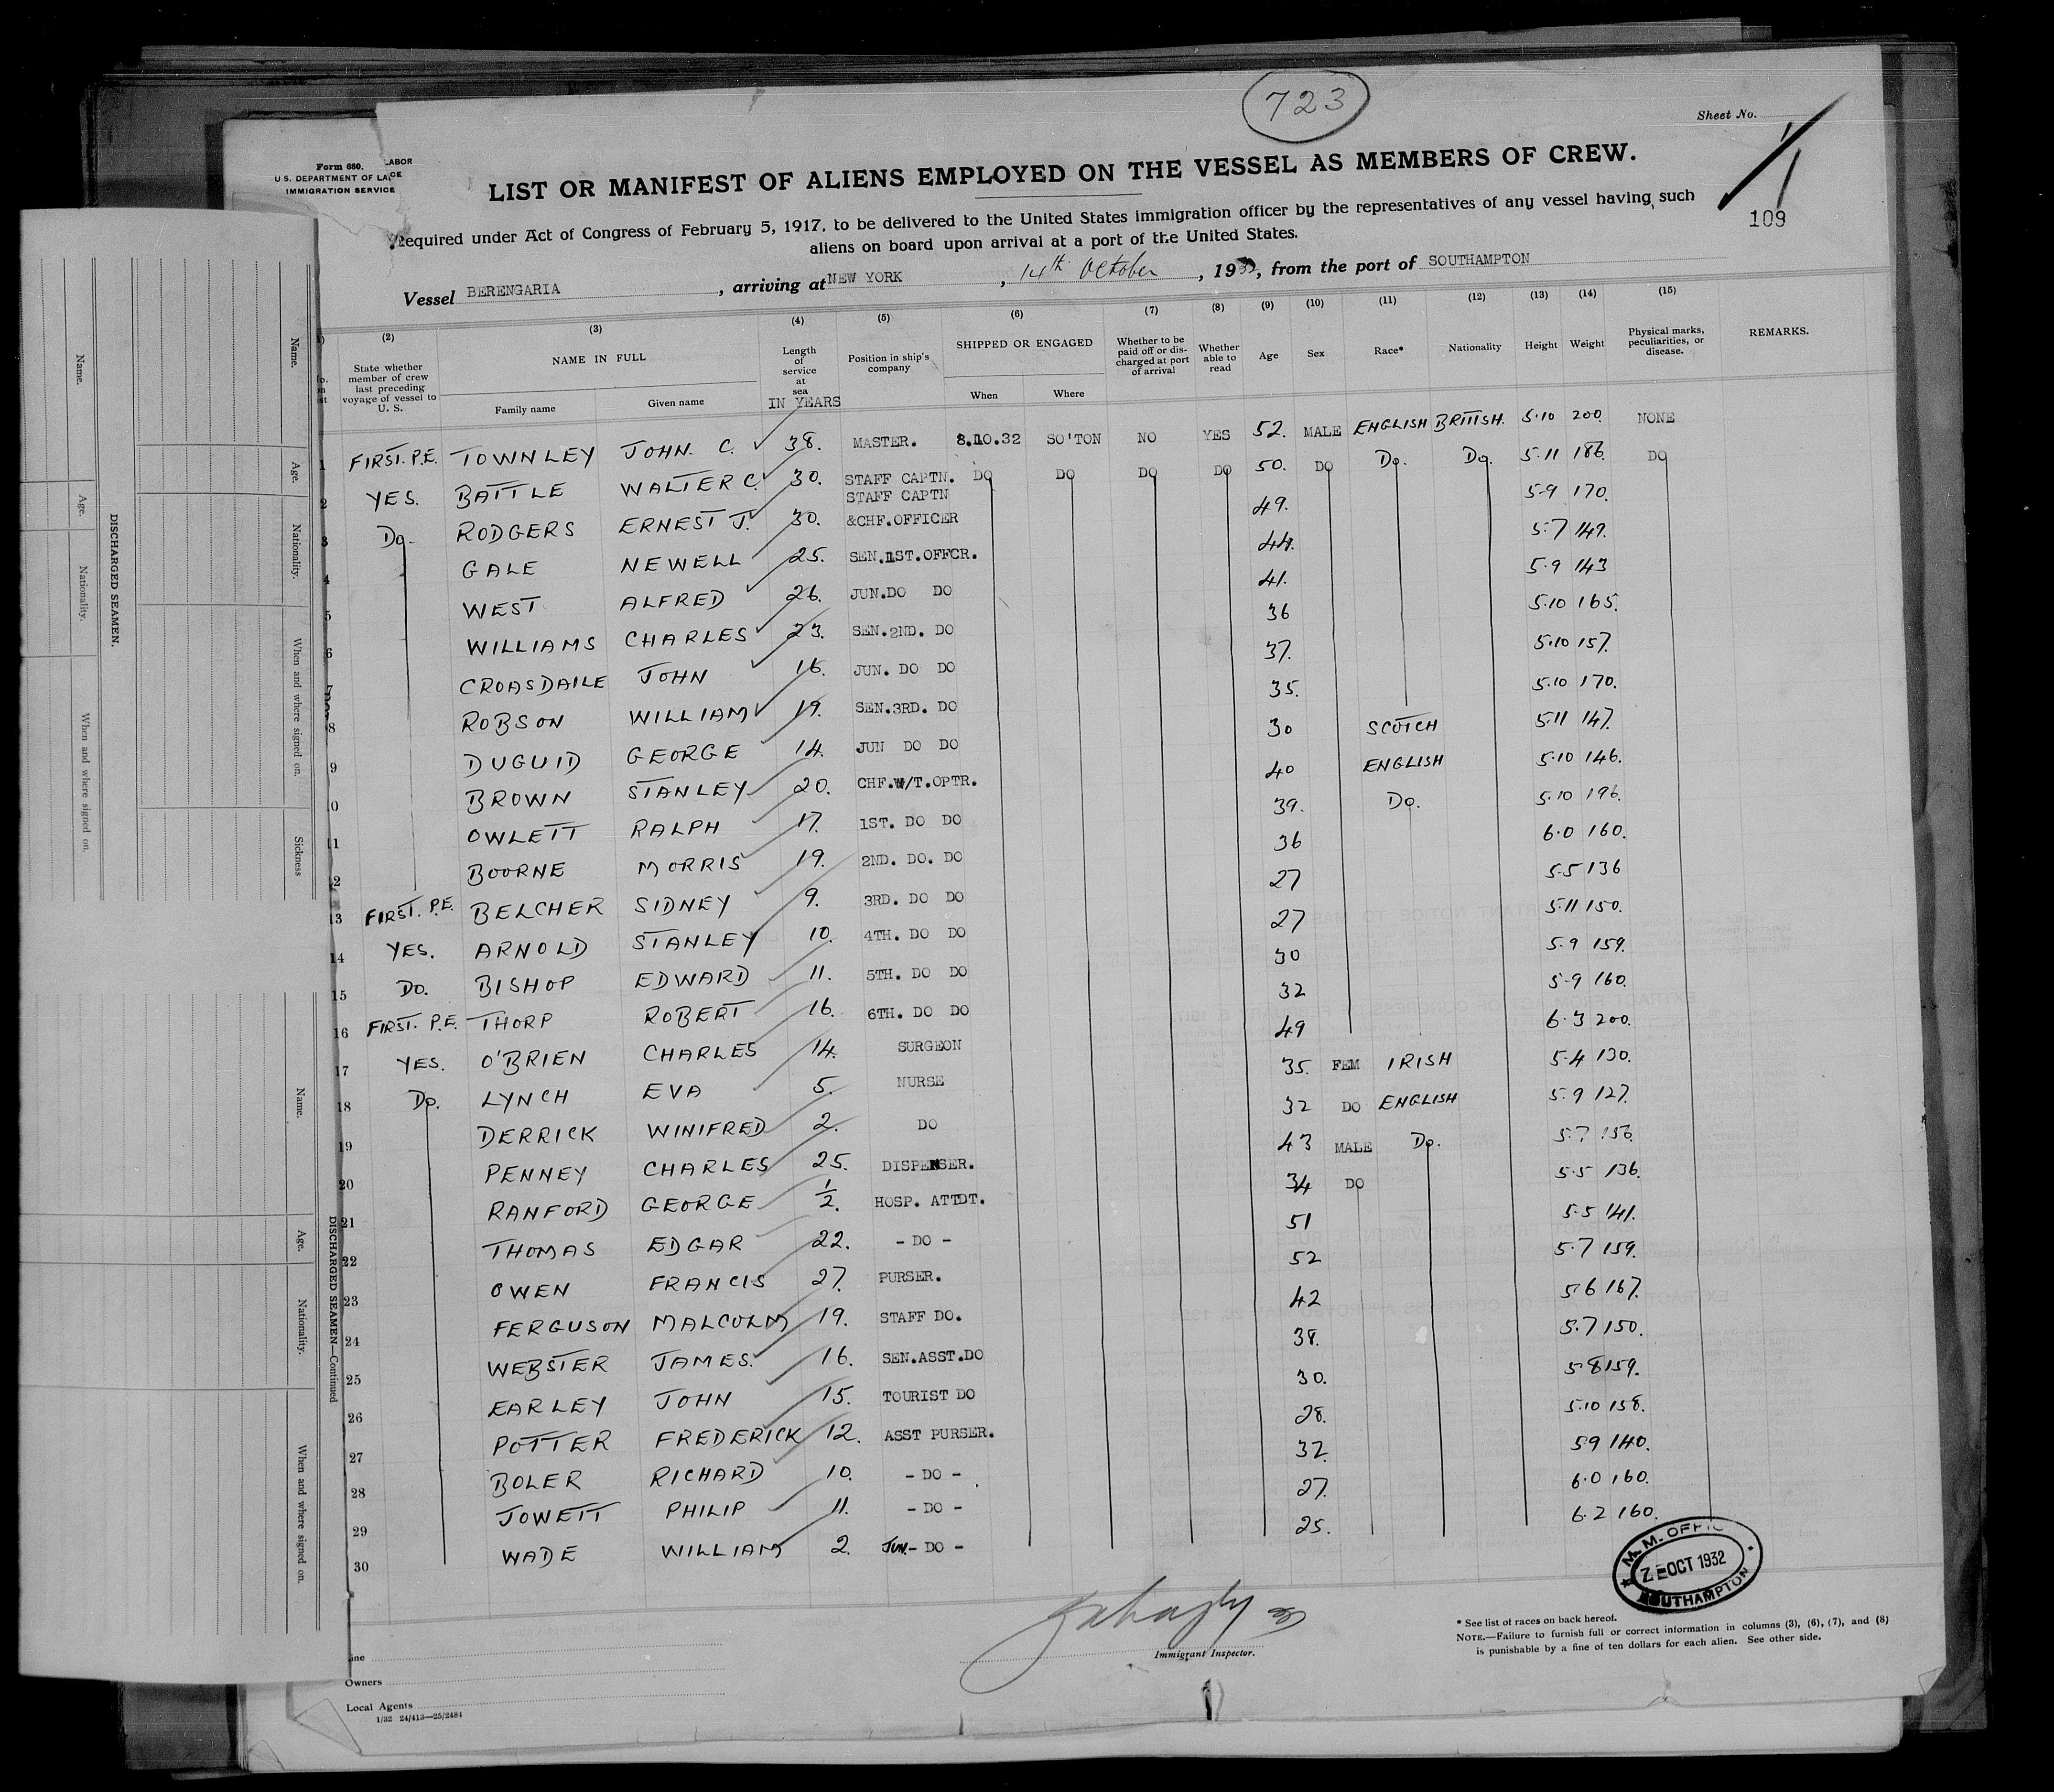 723
Sheet No. 1
Form 680.
U.S. DEPARTMENT OF LABOR
IMMIGRATION SERVICE
LIST OR MANIFEST OF ALIENS EMPLOYED ON THE VESSEL AS MEMBERS OF CREW.
109
Required under Act of Congress of February 5, 1917, to be delivered to the United States immigration officer by the representatives of any vessel having such
aliens on board upon arrival at a port of the United States.
Vessel BERENGARIA, arriving at NEW YORK, 14th October, 1932, from the port of SOUTHAMPTON
(2) (3) (4) (5) (6) (7) (8) (9) (10) (11) (12) (13) (14) (15)
State whether member of crew last preceding voyage of vessel to U. S. NAME IN FULL Family name Given name Length of service at sea IN YEARS Position in ship's company SHIPPED OR ENGAGED When Where Whether to be paid off or discharged at port of arrival Whether able to read Age Sex Race* Nationality Height Weight Physical marks, peculiarities, or disease. REMARKS.
1 FIRST. P.E. TOWNLEY JOHN. C. 38. MASTER. 8.10.32 SO'TON NO YES 52. MALE ENGLISH BRITISH. 5.10 200. NONE
2 YES. BATTLE WALTER C. 30. STAFF CAPTN. DO DO DO DO 50. DO Do. Do. 5.11 186. DO
3 Do. RODGERS ERNEST J. 30. STAFF CAPTN &CHF.OFFICER 49. 5.9 170.
4 GALE NEWELL 25. SEN.1ST.OFFCR. 44. 5.7 149.
5 WEST ALFRED 26. JUN.DO DO 41. 5.9 143
6 WILLIAMS CHARLES 23. SEN.2ND. DO 36 5.10 165.
7 CROASDAILE JOHN 16. JUN. DO DO 37. 5.10 157.
8 ROBSON WILLIAM 19. SEN.3RD. DO 35. 5.10 170.
9 DUGUID GEORGE 14. JUN DO DO 30 SCOTCH 5.11 147.
10 BROWN STANLEY 20. CHF.W/T.OPTR. 40 ENGLISH 5.10 146.
11 OWLETT RALPH 17. 1ST. DO DO 39. Do. 5.10 196.
12 BOORNE MORRIS 19. 2ND. DO. DO 36 6.0 160.
13 FIRST. P.E. BELCHER SIDNEY 9. 3RD. DO DO 27 5.5 136
14 YES. ARNOLD STANLEY 10. 4TH. DO DO 27 5.11 150.
15 DO. BISHOP EDWARD 11. 5TH. DO DO 30 5.9 159.
16 FIRST. P.E. THORP ROBERT 16. 6TH. DO DO 32 5.9 160.
17 YES. O'BRIEN CHARLES 14. SURGEON 49 6.3 200.
18 Do. LYNCH EVA 5. NURSE 35. FEM IRISH 5.4 130.
19 DERRICK WINIFRED 2. DO 32 DO ENGLISH 5.9 127.
20 PENNEY CHARLES 25. DISPENSER. 43 MALE Do. 5.7 156.
21 RANFORD GEORGE 1/2. HOSP. ATTDT. 34 DO 5.5 136.
22 THOMAS EDGAR 22. - DO - 51 5.5 141.
23 OWEN FRANCIS 27. PURSER. 52 5.7 159.
24 FERGUSON MALCOLM 19. STAFF DO. 42 5.6 167.
25 WEBSTER JAMES. 16. SEN.ASST.DO 38. 5.7 150.
26 EARLEY JOHN 15. TOURIST DO 30. 5 8 159.
27 POTTER FREDERICK 12. ASST PURSER. 28. 5.10 158.
28 BOLER RICHARD 10. - DO - 32. 5 9 140.
29 JOWETT PHILIP 11. - DO - 27. 6.0 160.
30 WADE WILLIAM 2. JUN.- DO - 25. 6.2 160.
M.M. OFFICE
OCT 1932
SOUTHAMPTON
Immigrant Inspector.
* See list of races on back hereof.
NOTE.—Failure to furnish full or correct information in columns (3), (6), (7), and (8)
is punishable by a fine of ten dollars for each alien. See other side.
Line
Owners
Local Agents
1/32 24/413—25/2484
DISCHARGED SEAMEN.
Name.
Age.
Nationality.
When and where signed on.
Name.
Age.
Nationality.
When and where signed on.
Sickness
DISCHARGED SEAMEN—Continued
Name.
Age.
Nationality.
When and where signed on.